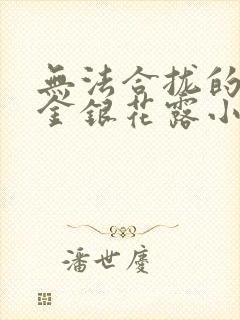 無法合拢的
金銀花露小
潘世慶